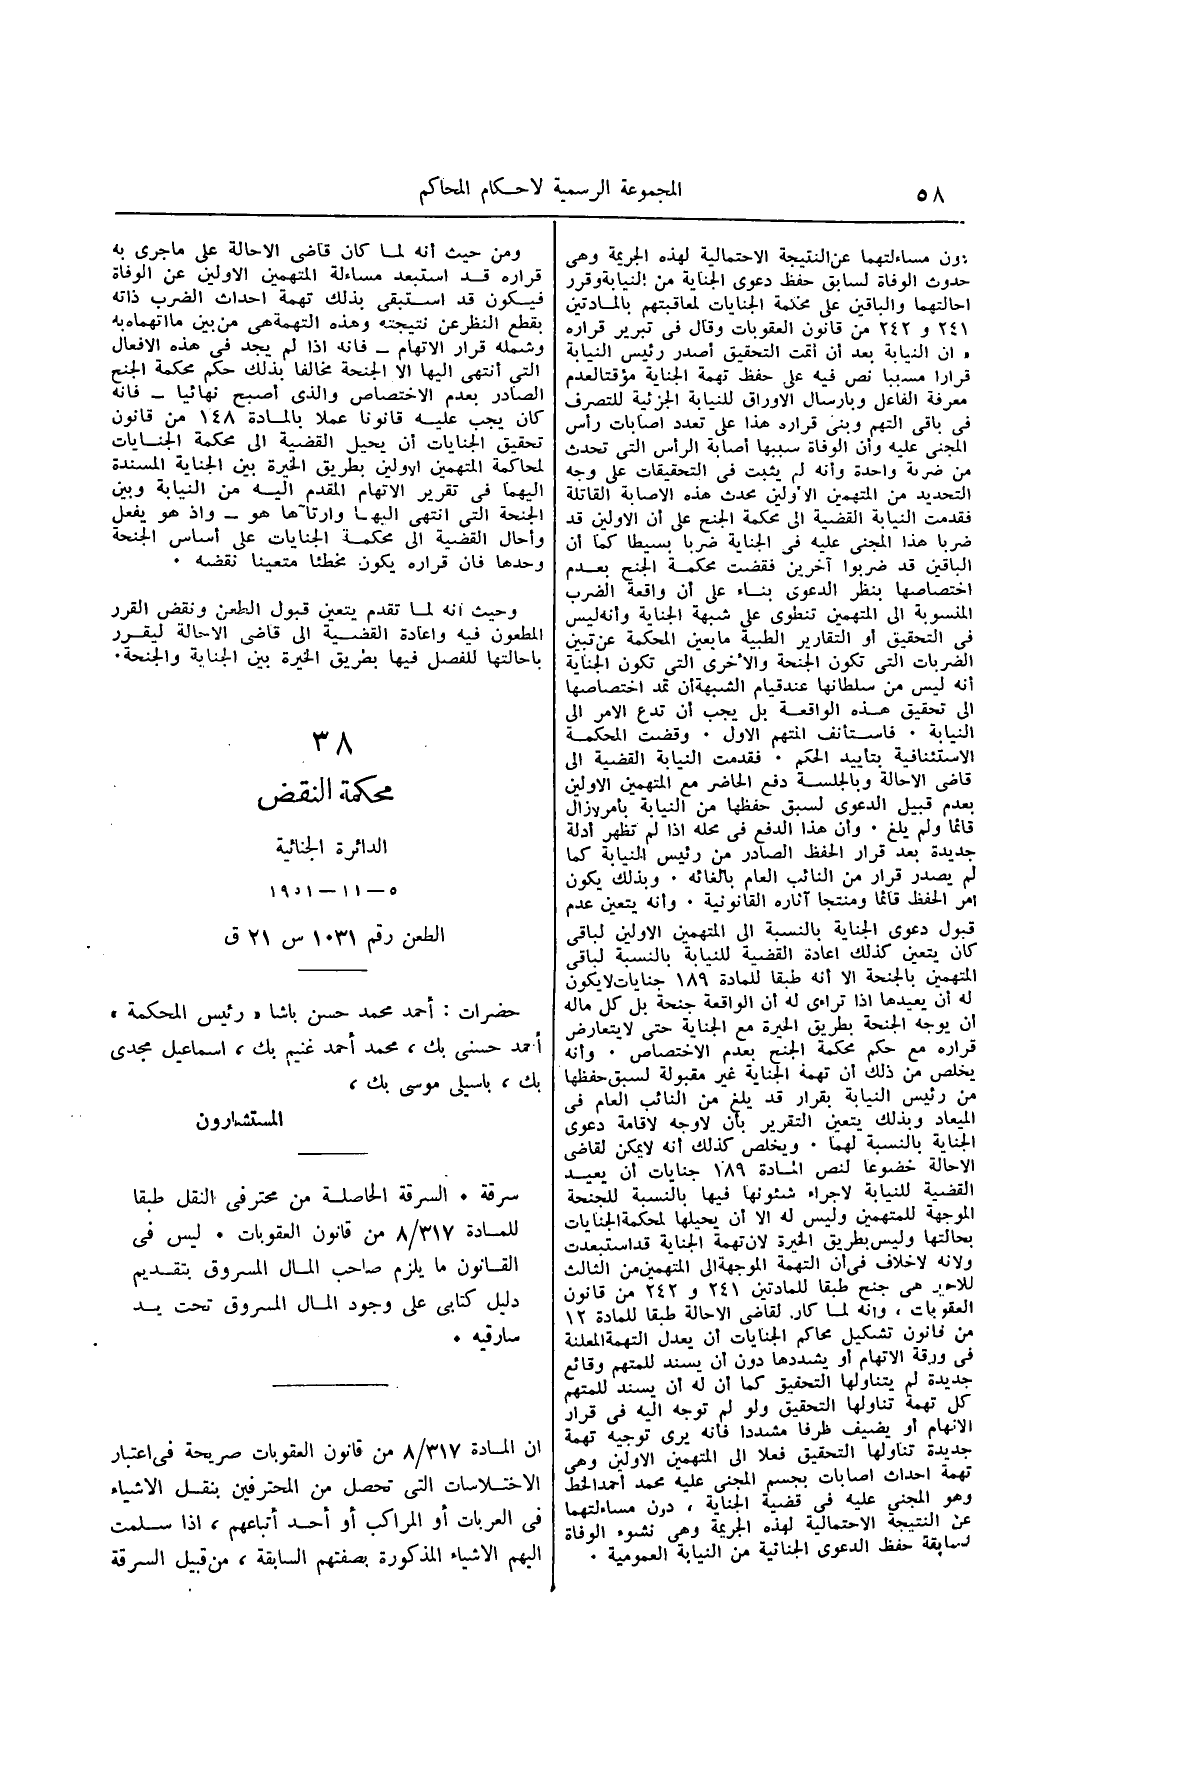 ٥٨
المجموعة الرسمية لاحكام المحاكم
دون مساءلتهما عن النتيجة الاحتمالية لهذه الجريمة وهى
حدوث الوفاة لسابق حفظ دعوى الجناية من النيابة وقرر
احالتهما والباقين على محكمة الجنايات لمعاقبتهم بالمادتين
٢٤١ و ٢٤٢ من قانون العقوبات وقال فى تبرير قراره
« ان النيابة بعد أن أتمت التحقيق أصدر رئيس النيابة
قرارا مسببا نص فيه على حفظ تهمة الجناية مؤقتا لعدم
معرفة الفاعل وبارسال الاوراق للنيابة الجزئية للتصرف
فى باقى التهم وبنى قراره هذا على تعدد اصابات رأس
المجنى عليه وأن الوفاة سببها أصابة الرأس التى تحدث
من ضربة واحدة وأنه لم يثبت فى التحقيقات على وجه
التحديد من المتهمين الأولين محدث هذه الاصابة القاتلة
فقدمت النيابة القضية الى محكمة الجنح على أن الاولين قد
ضربا هذا المجنى عليه فى الجناية ضربا بسيطا كما أن
الباقين قد ضربوا آخرين فقضت محكمة الجنح بعدم
اختصاصها بنظر الدعوى بناء على أن واقعة الضرب
المنسوبة الى المتهمين تنطوى على شبهة الجناية وأنه ليس
فى التحقيق أو التقارير الطبية ما يعين المحكمة عن تبين
الضربات التى تكون الجنحة والأخرى التى تكون الجناية
أنه ليس من سلطانها عند قيام الشبهة أن تمد اختصاصها
الى تحقيق هذه الواقعة بل يجب أن تدع الامر الى
النيابة ٠ فاستأنف المتهم الاول ٠ وقضت المحكمة
الاستئنافية بتأييد الحكم ٠ فقدمت النيابة القضية الى
قاضى الاحالة وبالجلسة دفع الحاضر مع المتهمين الاولين
بعدم قبيل الدعوى لسبق حفظها من النيابة بأمر لازال
قائما ولم يلغ ٠ وأن هذا الدفع فى محله اذا لم تظهر أدلة
جديدة بعد قرار الحفظ الصادر من رئيس النيابة كما
لم يصدر قرار من النائب العام بالغائه ٠ وبذلك يكون
امر الحفظ قائما ومنتجا آثاره القانونية ٠ وأنه يتعين عدم
قبول دعوى الجناية بالنسبة الى المتهمين الاولين لباقى
كان يتعين كذلك اعادة القضية للنيابة بالنسبة لباقى
المتهمين بالجنحة الا أنه طبقا للمادة ١٨٩ جنايات لا يكون
له أن يعيدها اذا تراءى له أن الواقعة جنحة بل كل ماله
أن يوجه الجنحة بطريق الخيرة مع الجناية حتى لا يتعارض
قراره مع حكم محكمة الجنح بعدم الاختصاص ٠ وأنه
يخلص من ذلك أن تهمة الجناية غير مقبولة لسبق حفظها
من رئيس النيابة بقرار قد يلغ من النائب العام فى
الميعاد وبذلك يتعين التقرير بأن لاوجه لاقامة دعوى
الجناية بالنسبة لهما ٠ ويخلص كذلك أنه لايمكن لقاضى
الاحالة خضوعا لنص المادة ١٨٩ جنايات أن يعيد
القضية للنيابة لاجراء شئونها فيها بالنسبة للجنحة
الموجهة للمتهمين وليس له الا أن يحيلها لمحكمة الجنايات
بحالتها وليس بطريق الخيرة لان تهمة الجناية قد استبعدت
ولانه لاخلاف فى أن التهمة الموجهة الى المتهمين من الثالث
للاخير هى جنح طبقا للمادتين ٢٤١ و ٢٤٢ من قانون
العقوبات ، وانه لما كان لقاضى الاحالة طبقا للمادة ١٢
من قانون تشكيل محاكم الجنايات أن يعدل التهمة المعلنة
فى ورقة الاتهام أو يشددها دون أن يسند للمتهم وقائع
جديدة لم يتناولها التحقيق كما أن له أن يسند للمتهم
كل تهمة تناولها التحقيق ولو لم توجه اليه فى قرار
الاتهام أو يضيف ظرفا مشددا فأنه يرى توجيه تهمة
جديدة تناولها التحقيق فعلا الى المتهمين الاولين وهى
تهمة احداث اصابات بجسم المجنى عليه محمد أحمد الخط
وهو المجنى عليه فى قضية الجناية ، دون مساءلتهما
عن النتيجة الاحتمالية لهذه الجريمة وهى نشوء الوفاة
لسابقة حفظ الدعوى الجنائية من النيابة العمومية ٠
ومن حيث أنه لما كان قاضى الاحالة على ماجرى به
قراره قد استبعد مساءلة المتهمين الاولين عن الوفاة
فيكون قد استبقى بذلك تهمة احداث الضرب ذاته
بقطع النظر عن نتيجته وهذه التهمة هى من بين ما اتهما به
وشمله قرار الاتهام ــ فانه اذا لم يجد فى هذه الافعال
التى أنتهى اليها الا الجنحة مخالفا بذلك حكم محكمة الجنح
الصادر بعدم الاختصاص والذى أصبح نهائيا ــ فانه
كان يجب عليه قانونا عملا بالمادة ١٤٨ من قانون
تحقيق الجنايات أن يحيل القضية الى محكمة الجنايات
لمحاكمة المتهمين الاولين بطريق الخيرة بين الجناية المسندة
اليهما فى تقرير الاتهام المقدم اليه من النيابة وبين
الجنحة التى انتهى اليها وارتآها هو ــ واذ هو يفعل
وأحال القضية الى محكمة الجنايات على أساس الجنحة
وحدها فان قراره يكون مخطئا متعينا نقضه ٠
وحيث انه لما تقدم يتعين قبول الطعن ونقض القرر
المطعون فيه واعادة القضية الى قاضى الاحالة ليقرر
باحالتها للفصل فيها بطريق الخيرة بين الجناية والجنحة٠
٣٨
محكمة النقض
الدائرة الجنائية
٥ – ١١ – ١٩٥١
الطعن رقم ١٠٣١ س ٢١ ق
حضرات : أحمد محمد حسن باشا « رئيس المحكمة »
أحمد حسنى بك ، محمد أحمد غنيم بك ، اسماعيل مجدى
بك ، باسيلى موسى بك ،
المستشارون
سرقة ٠ السرقة الحاصلة من محترفى النقل طبقا
للمادة ٨/٣١٧ من قانون العقوبات ٠ ليس فى
القانون ما يلزم صاحب المال المسروق بتقديم
دليل كتابى على وجود المال المسروق تحت يد
سارقيه ٠
ان المادة ٨/٣١٧ من قانون العقوبات صريحة فى اعتبار
الاختلاسات التى تحصل من المحترفين بنقل الاشياء
فى العربات أو المراكب أو أحد أتباعهم ، اذا سلمت
اليهم الاشياء المذكورة بصفتهم السابقة ، من قبيل السرقة